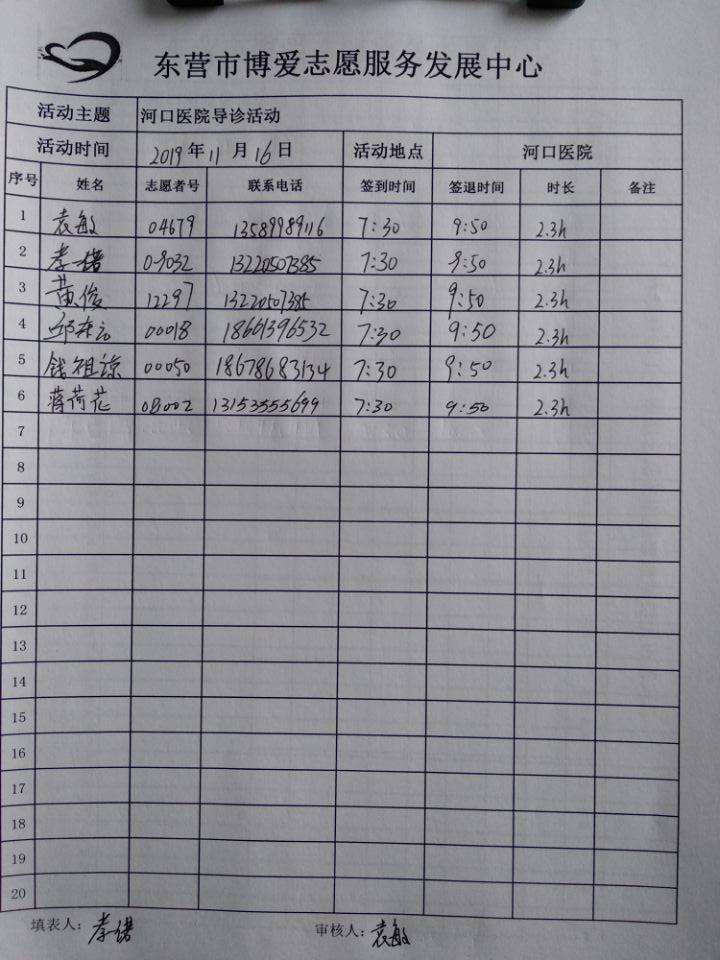 东营市博爱志愿服务发展中心
活动主题 河口医院导诊活动
活动时间 2019年11月16日 活动地点 河口医院
序号 姓名 志愿者号 联系电话 签到时间 签退时间 时长 备注
1 袁敏 04679 13589989116 7:30 9:50 2.3h
2 13220507385 7:30 9:50 2.3h
3 黄俊 12297 13220507385 7:30 9:50 2.3h
4 00018 18661396532 7:30 9:50 2.3h
5 钱祖琼 00050 18678683134 7:30 9:50 2.3h
6 蒋荷花 08002 13153555699 7:30 9:50 2.3h
7
8
9
10
11
12
13
14
15
16
17
18
19
20
填表人: 审核人:袁敏